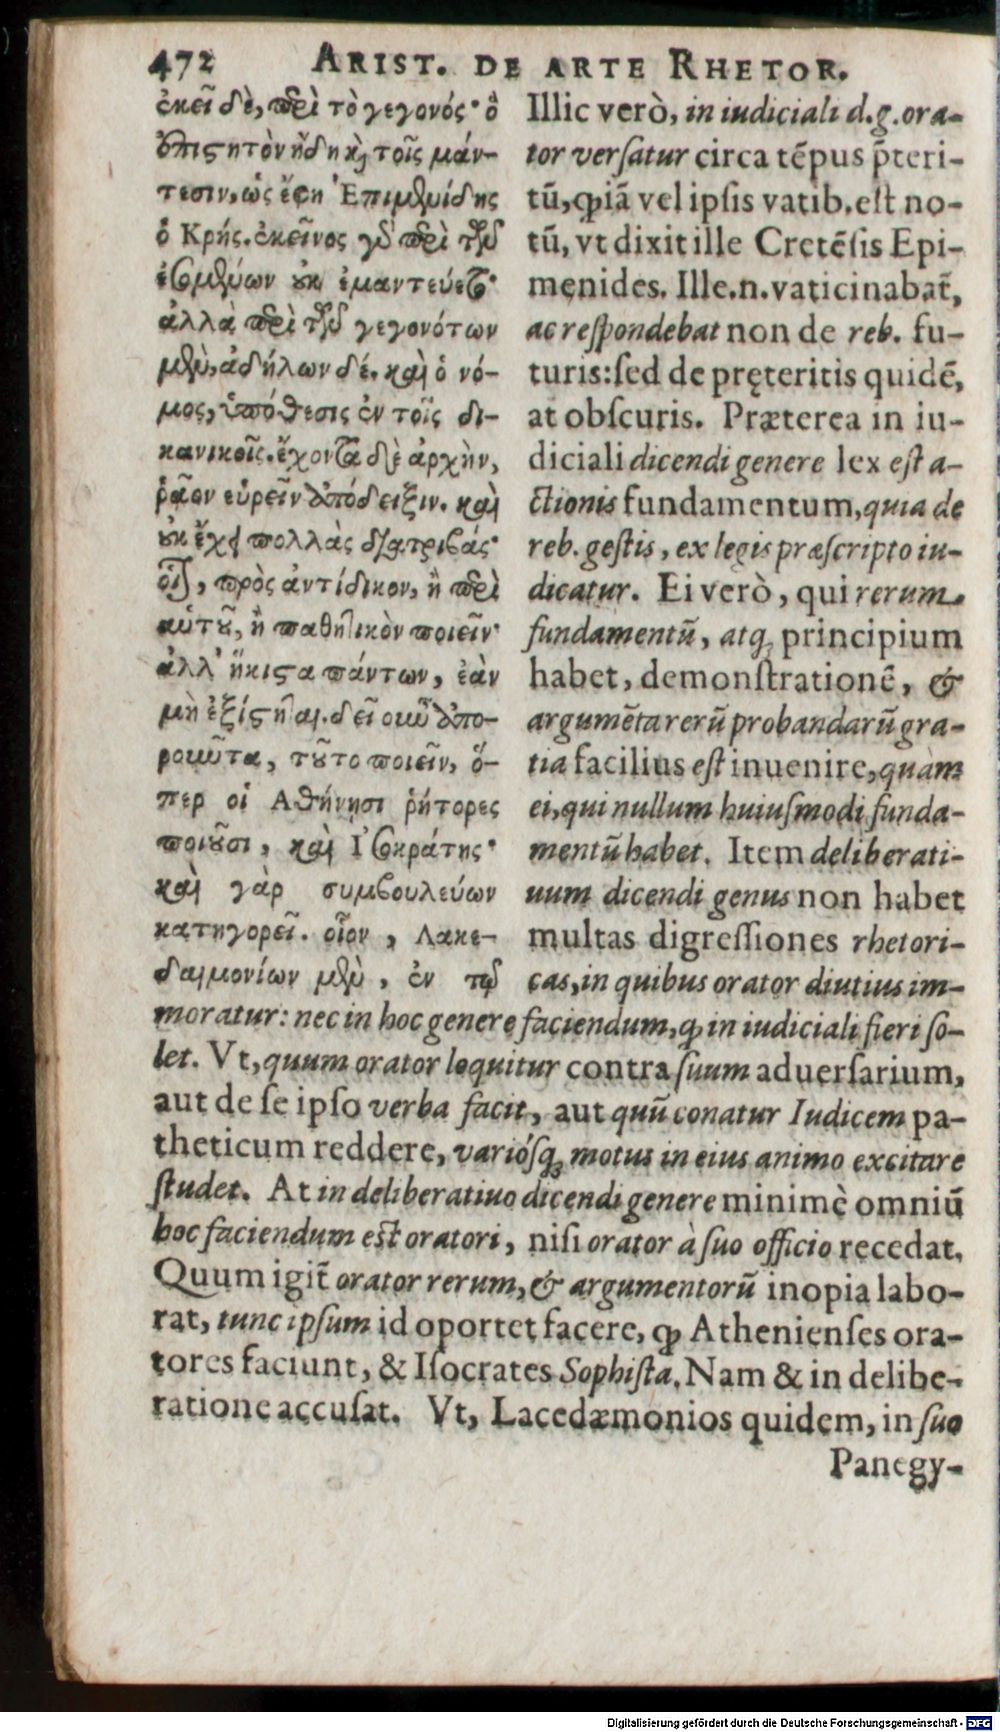 472 ARIST. DE ARTE RHETOR.
ἐκεῖ δὲ, περὶ τὸ γεγονός· ὃ
ἐπιστητὸν ἤδη καὶ τοῖς μάν-
τεσιν, ὡς ἔφη Ἐπιμενίδης
ὁ Κρής. ἐκεῖνος γὰρ περὶ τῶν
ἐσομένων οὐκ ἐμαντεύετο·
ἀλλὰ περὶ τῶν γεγονότων
μὲν, ἀδήλων δέ. καὶ ὁ νό-
μος, ὑπόθεσις ἐν τοῖς δι-
κανικοῖς. ἔχοντα δὲ ἀρχὴν,
ῥᾷον εὑρεῖν ἀπόδειξιν. καὶ
οὐκ ἔχει πολλὰς διατριβάς·
οἷον, πρὸς ἀντίδικον, ἢ περὶ
αὑτοῦ, ἢ παθητικὸν ποιεῖν·
ἀλλ' ἥκιστα πάντων, ἐὰν
μὴ ἐξίστηται. δεῖ οὖν ἀπο-
ροῦντα, τοῦτο ποιεῖν, ὅ-
περ οἱ Ἀθήνησι ῥήτορες
ποιοῦσι, καὶ Ἰσοκράτης·
καὶ γὰρ συμβουλεύων
κατηγορεῖ. οἷον, Λακε-
δαιμονίων μὲν, ἐν τῷ
Illic verò, in iudiciali d.g.ora-
tor versatur circa tẽpus p̃teri-
tũ, ꝙ iã vel ipsis vatib. est no-
tũ, vt dixit ille Cretẽsis Epi-
menides. Ille.n.vaticinabat̃,
ac respondebat non de reb. fu-
turis: sed de pręteritis quidẽ,
at obscuris. Præterea in iu-
diciali dicendi genere lex est a-
ctionis fundamentum, quia de
reb. gestis, ex legis præscripto iu-
dicatur. Ei verò, qui rerum
fundamentũ, atq; principium
habet, demonstrationẽ, &
argumẽta rerũ probandarũ gra-
tia facilius est inuenire, quàm
ei, qui nullum huiusmodi funda-
mentũ habet. Item deliberati-
uum dicendi genus non habet
multas digressiones rhetori-
cas, in quibus orator diutius im-
moratur: nec in hoc genere faciendum, ꝙ in iudiciali fieri so-
let. Vt, quum orator loquitur contra suum aduersarium,
aut de se ipso verba facit, aut quũ conatur Iudicem pa-
theticum reddere, variósq; motus in eius animo excitare
studet. At in deliberatiuo dicendi genere minimè omniũ
hoc faciendum est oratori, nisi orator à suo officio recedat.
Quum igit̃ orator rerum, & argumentorũ inopia labo-
rat, tunc ipsum id oportet facere, ꝙ Athenienses ora-
tores faciunt, & Isocrates Sophista. Nam & in delibe-
ratione accusat. Vt, Lacedæmonios quidem, in suo
Panegy-
Digitalisierung gefördert durch die Deutsche Forschungsgemeinschaft - DFG